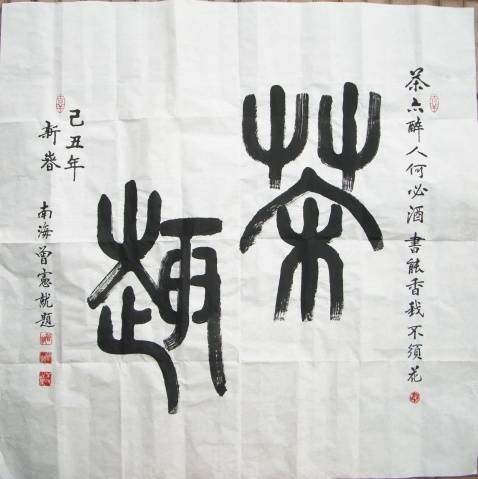 茶亦醉人何必酒書能香我不須花
茶趣
己丑年
新春
南海曾憲就題